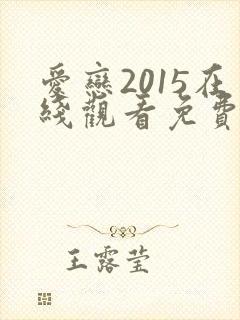 愛戀2015在
綫觀看免費
王露莹